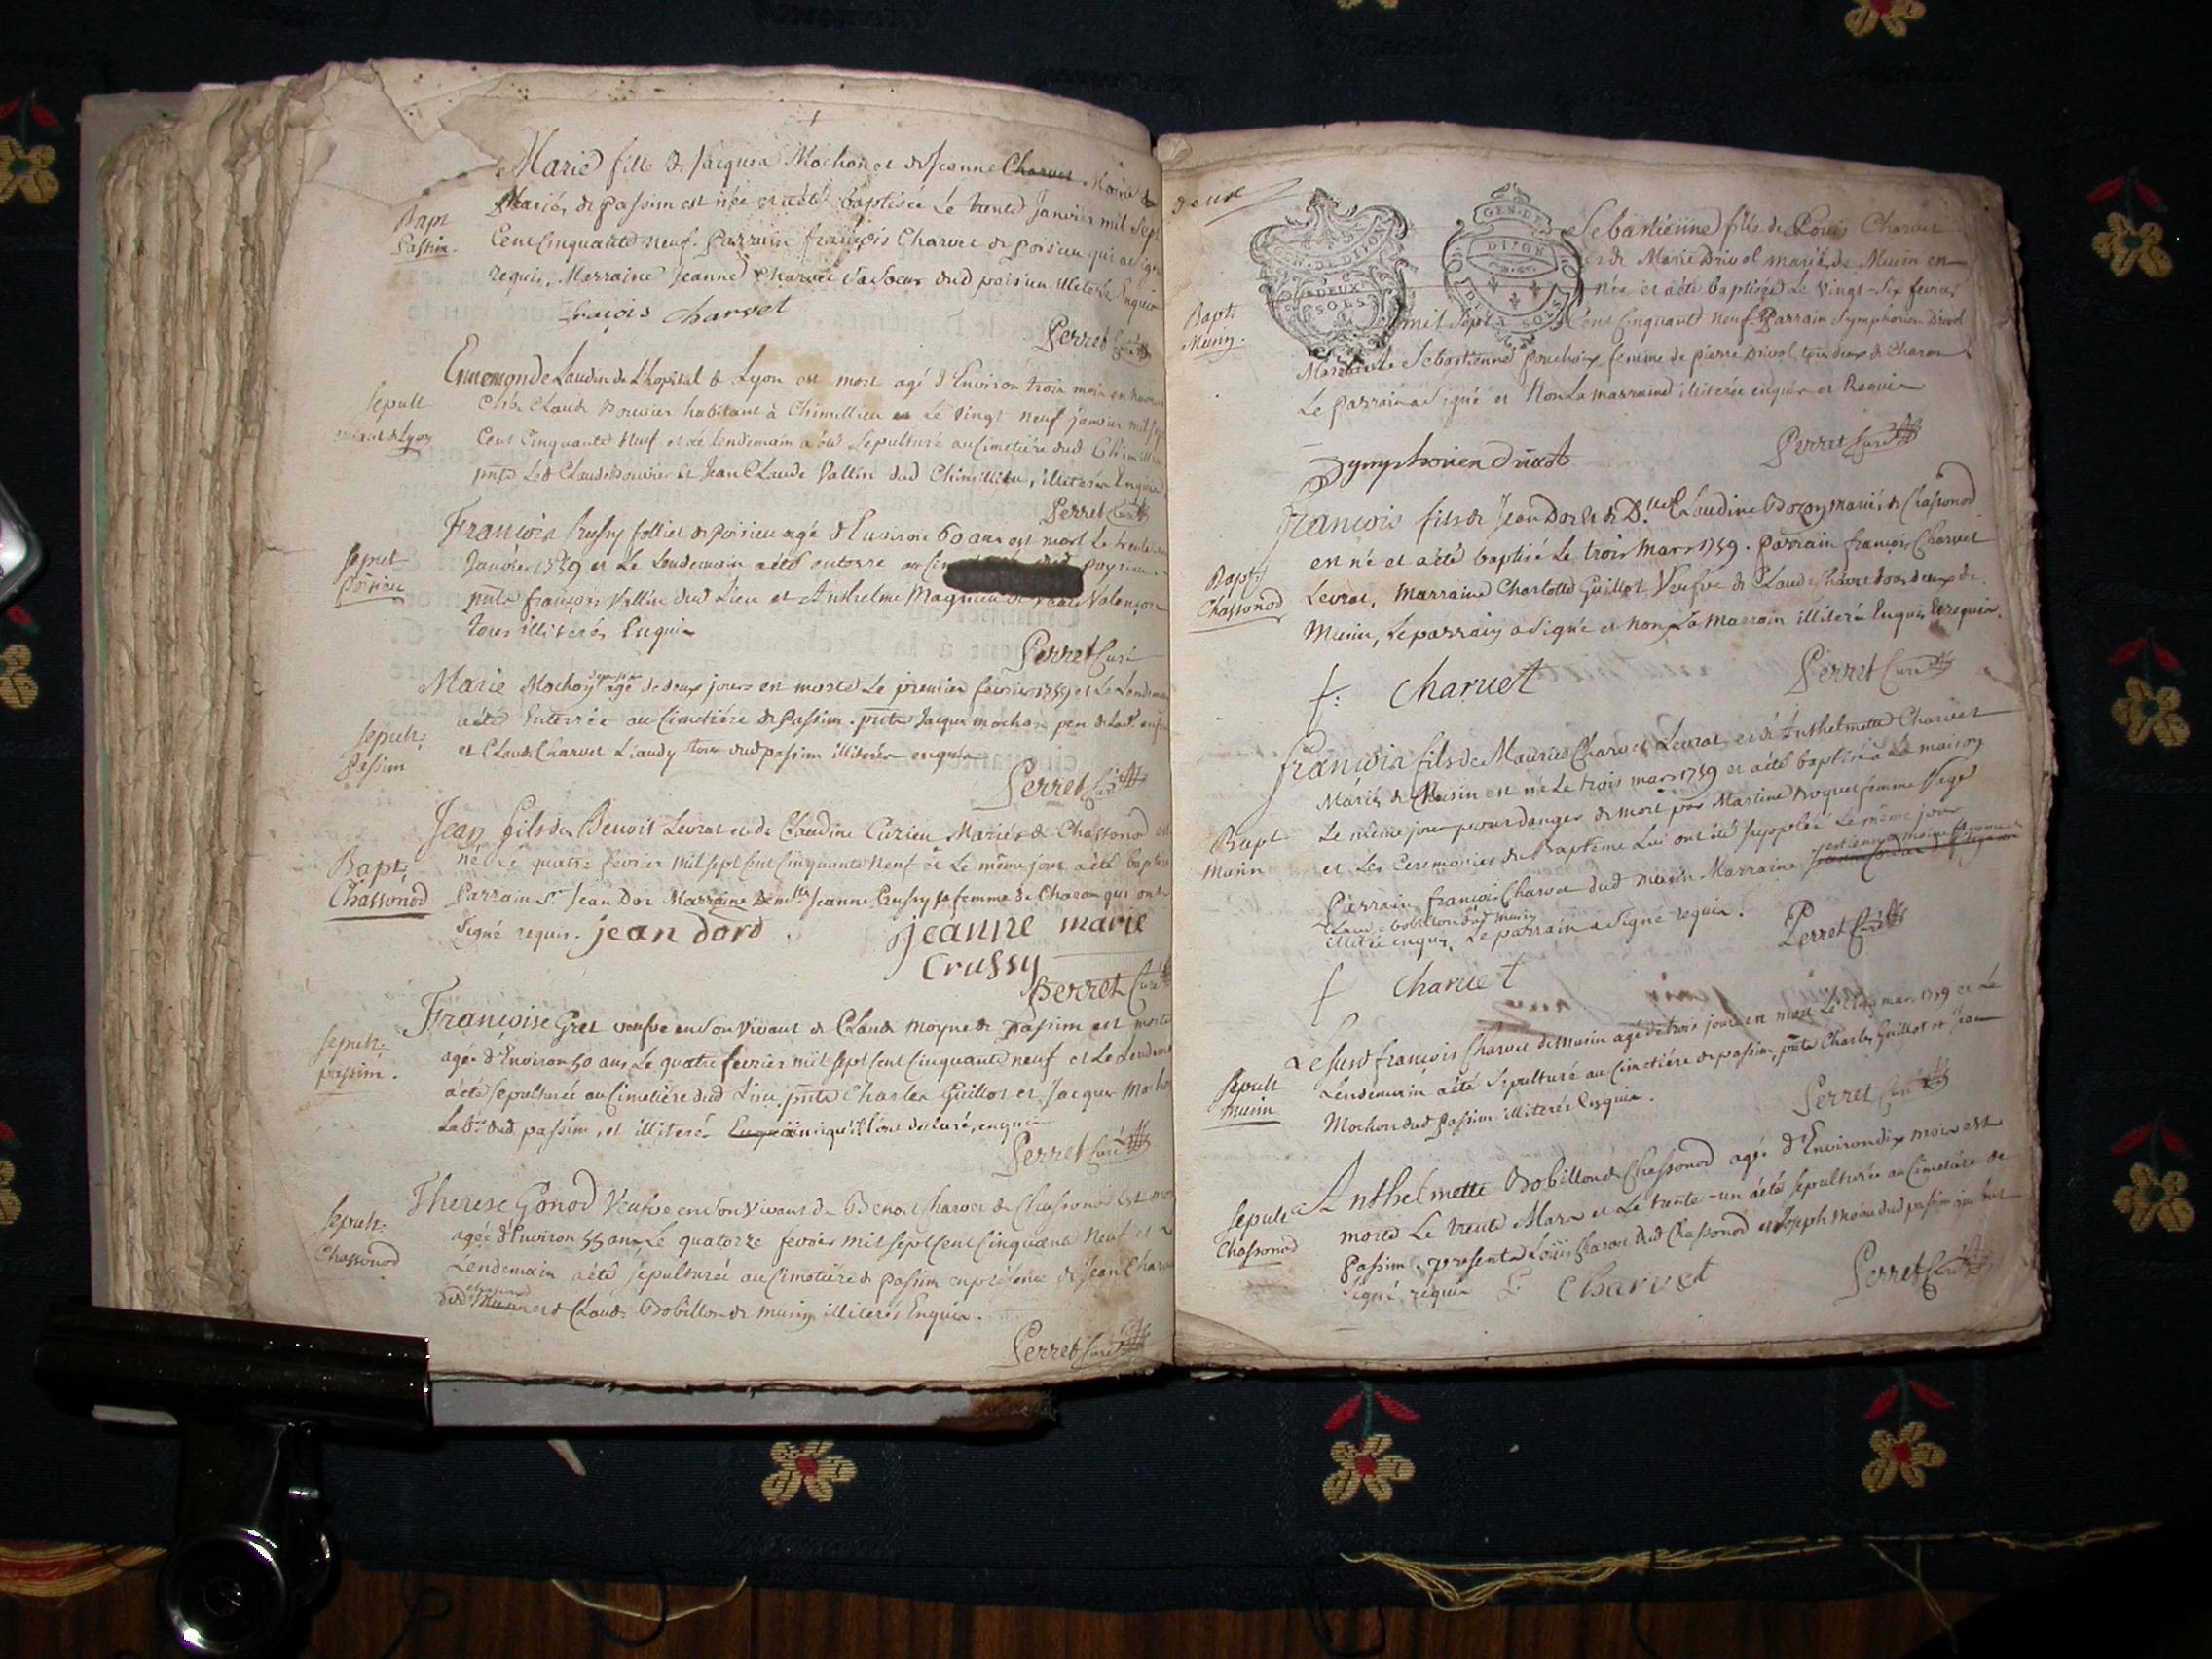 Marie fille de Jacques Mochon et de Jeanne Charvet Moine
Mariés de passim est née et a été baptisée Le trente Janvier mil Sept
Bapt
Passin.
Cent Cinquante neuf. Parrain françois Charvet de poisieu qui a signé
requis, Marraine Jeanne Charvet sa soeur dud poisieu illiterée Enquise
françois charvet
Perret Curé
Ennemonde Laudin de L'hopital de Lyon est mort agé d'Environ trois mois en
Sepult
enfant de Lyon
chés Claude Bouvier habitant à Chimillieu Le vingt neuf janvier mil sept
Cent Cinquante Neuf et Le lendemain a été Sepulturé au Cimetiére dud Chimillieu
pnts Led Claude Bouvier et Jean Claude Vallin dud Chimillieu, illiterés Enquis
Perret Curé
François Crussy folliet de Poisieu agé d'Environ 60 ans est mort Le trente
Sepult
Poisieu
Janvier 1759 et Le Lendemain a été enterré au
pnts françois Vallin dud Lieu et Anthelme Magnieu de Valençon
tous illiterés Enquis
Perret Curé
Marie Mochon agé de deux jours est morte Le premier fevrier 1759 et Le Lendemain
Sepult:
Passim
a été Enterrée au Cimetiére de Passim. pnts Jacques mochon pere de lad. enfant
et Claude Charvet Liaudy tous dud passim illiterés enquis
Perret Curé
Jean fils de Benoit Levrat et de Claudine Curieu Mariés de Chassonod est
Bapt:
Chassonod
né Le quatre fevrier mil sept cent Cinquante Neuf et Le même jour a été baptisé
Parrain Sr Jean Dor Marraine Demlle Jeanne Crussy sa femme de Charon qui ont
Signé requis. jean dord. jeanne marie
crussy
Perret Curé
Françoise Gret veufve en son vivant de Claude moyne de passim est morte
Sepult:
passim.
agée d'Environ 50 ans Le quatre fevrier mil sept cent Cinquante neuf et Le Lendemain
a été sepulturée au Cimetiére dud Lieu, pnts Charles Guillot et Jacques Mochon
Lab.rs dud passim, et illiterés Enquis ainsi qu'ils ont declaré, enquis
Perret Curé
Therese Gonod Veufve en son vivant de Benoit Charvet de Chassonod est morte
Sepult:
Chassonod
agée d'Environ 55 ans Le quatorze fevrier mil sept cent Cinquante Neuf et Le
Lendemain a été sepulturée au Cimetiére de passim en présence de Jean Charvet
dud et de Claude Bobillon de musin illiterés Enquis.
Perret Curé
deux
GEN. DE DIJON
DEUX
SOLS
GEN. DE
DIJON
DEUX SOLS
Sebastienne fille de Louis Charvet
et de Marie Drivol mariés de Musin en
Bapt:
Musin.
née et a été baptisée Le vingt-six fevrier
mil sept Cent Cinquante neuf. Parrain Symphorien Drivol
Marraine Sebastienne pouchoix femme de pierre Drivol, tous deux de Charon
Le parrain a Signé et Non La marraine illiterée enquise et Requis
Symphorien
Perret Curé
François fils de Jean Dor et de D.lle Claudine Bozon mariés de Chassonod
Bapt:
Chassonod
est né et a été baptisé Le trois Mars 1759. Parrain françois Charvet
Levrat, Marraine Charlotte Guillot Veufve de Claude tous deux de
Musin, Le parrain a signé et non La Marraine illiterée Enquis et requis.
f. charuet
Perret Curé
françois fils de Maurice Charvet Levrat et de Anthelmette Charvet
Mariés de Musin est né Le trois mars 1759 et a été baptisé à La maison
Bapt
Musin
Le même jour pour danger de mort par Martine Boquet femme sage
et Les ceremonies du Baptême Lui ont été suppléés Le même jour
Parrain françois Charvet dud musin Marraine
Claude bobillon dud musin
illiterée enquis, Le parrain a Signé requis.
Perret Curé
f charuet
Le Susd françois Charvet de musin agé de trois jours est mort Le cinq mars 1759 et Le
Sepult
musin
Lendemain a été Sepulturé au Cimetiére de passim, pnts Charles Guillot et Jean
Mochon dud Passim illiterés Enquis.
Perret Curé
Anthelmette Bobillon de Chassonod agée d'Environ dix mois est
Sepult
Chassonod
morte Le trente Mars et Le trente-un a été sepulturée au Cimetiére de
Passim. presents Louis Charvet dud Chassonod et Joseph moine dud passim qui ont
Signé requis L Charvet
Perret Curé